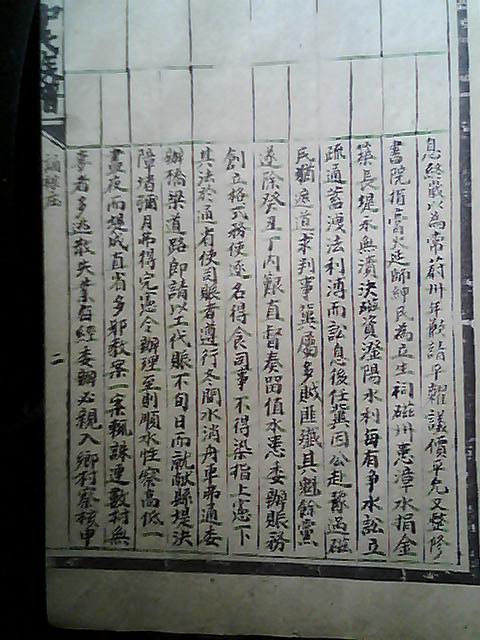 息終歲以為常蔚州年歉請平糶議價平允又整修
書院捐膏火延師紳民為立生祠磁州患漳水捐金
築長堤水無潰決磁資滏陽水利每有爭水訟立
疏通蓄洩法利溥而訟息後任冀因公赴豫過磁
民猶遮道求判事冀屬多賊匪殲其魁餘黨
遂除癸丑丁內艱直督奏留值水患委辦賑務
創立格式務使逐名得食司事不得染指上憲下
其法於通省使司賑者遵行冬間水消舟車弗通委
辦橋梁道路即請以工代賑不旬日而就獻縣堤決
障堵彌月弗得完憲令辦理至則順水性察高低一
晝夜而堤成直省多邪教案一案輒誅連數村無
辜者多逃散失業每經委辦必親入鄉村察核申
二